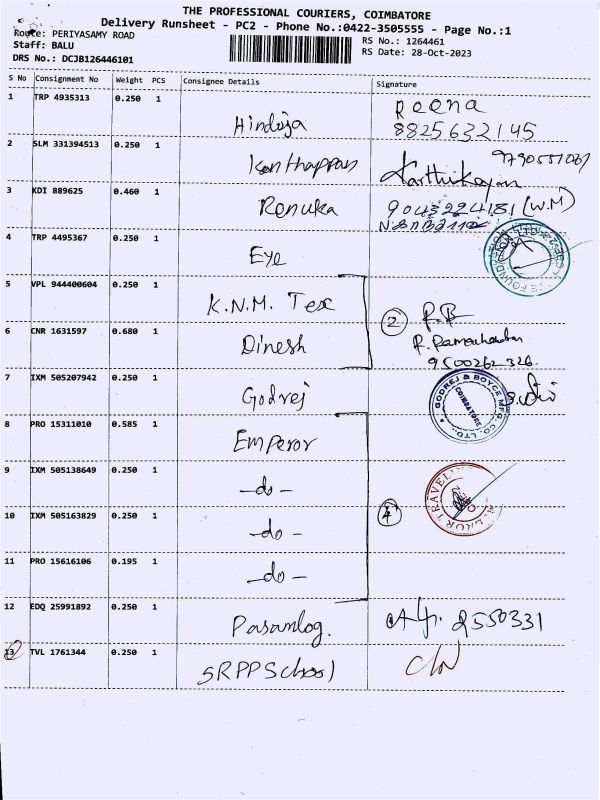 THE PROFESSIONAL COURIERS, COIMBATORE
Delivery Runsheet - PC2 - Phone No.:0422-3505555 - Page No.:1
Route: PERIYASAMY ROAD
Staff: BALU
DRS No.: DCJB126446101
RS No.: 1264461
RS Date: 28-Oct-2023
S No Consignment No Weight PCS Consignee Details Signature
1 TRP 4935313 0.250 1 Hindoja Reena
8825632145
2 SLM 331394513 0.250 1 Kanthappan Karthikeyan
3 KDI 889625 0.460 1 Renuka 9043224181 (W.M)
4 TRP 4495367 0.250 1 Eye
5 VPL 944400604 0.250 1 K.N.M. Tex
6 CNR 1631597 0.680 1 Dinesh
2 R.R
R. Ramachandran
9500262326
7 IXM 505207942 0.250 1 Godrej
GODREJ & BOYCE MFG. CO. LTD.
COIMBATORE
8 PRO 15311010 0.585 1 Emperor
9 IXM 505138649 0.250 1 -do-
10 IXM 505163829 0.250 1 -do-
4
11 PRO 15616106 0.195 1 -do-
12 EDQ 25991892 0.250 1 Pasamlog. 2550331
13 TVL 1761344 0.250 1 SRPP School